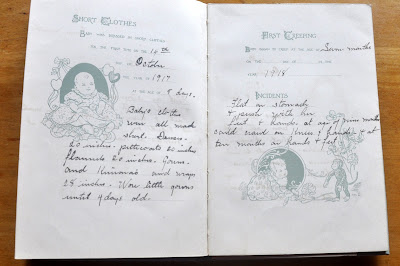 SHORT CLOTHES
BABY WAS DRESSED IN SHORT CLOTHES
FOR THE FIRST TIME ON THE 16th
DAY OF October
IN THE YEAR OF 1917
AT THE AGE OF 9 days.
Baby's clothes
were all made
short. Dresses
20 inches. petticoats 20 inches
flannels 20 inches. Gowns
and Kimonas and wraps
28 inches. Wore little gowns
until 9 days old.
FIRST CREEPING
BABY BEGAN TO CREEP AT THE AGE OF Seven months
ON THE DAY OF IN THE
YEAR 1918
INCIDENTS
Flat on stomach
& push with her
feet & hands. at age of nine months
could crawl on knees & hands & at
ten months on hands & feet